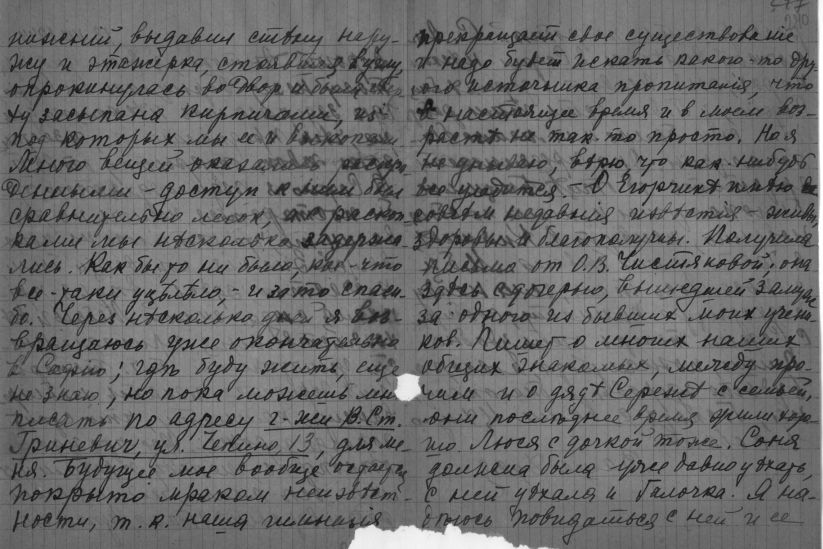 нижний, выдавил стену нару-
жу и этажерка, стоявшая в углу,
опрокинулась во двор и была
засыпана кирпичами, из
под которых мы ее и выкопали
Много вещей оказалось повре
жденными - доступ к ним был
сравнительно легок, но раскоп
ками мы нѣсколько задержа
лись. Как бы то ни было, кое-что
все-таки уцѣлѣло, - и за то спаси-
бо. Через нѣсколько дней я воз-
вращаюсь уже окончательно
в Софию; гдѣ буду жить, еще
не знаю, но пока можешь мнѣ
писать по адресу г-жи В. Ст.
Гриневич, ул. Чепино, 13, для ме-
ня. Будущее мое вообще остается
покрыто мраком неизвѣст-
ности, т. к. наша гимназія
прекращает свое существованіе
и надо будет искать какого-то дру
гого источника пропитанія, что
в настоящее время и в моем воз-
растѣ не так то просто. Но я
не унываю, вѣрю, что как нибудь
все уладится. - О Егорчикѣ имѣю
совсѣм недавнія извѣстія - живы,
здоровы и благополучны. Получила
письма от О. В. Чистяковой, она
здѣсь с дочерью, вышедшей замуж
за одного из бывших моих учени-
ков. Пишет о многих наших
общих знакомых, между про-
чим и о дядѣ Сережѣ с семьей,
они последнее время жили хоро-
шо. Люся с дочкой тоже. Соня
должна была уже давно уѣхать,
с ней уѣхала и Галочка. Я на-
дѣюсь повидаться с ней и ее